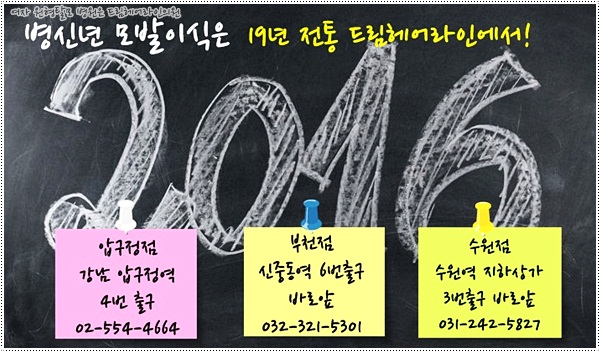 여자 원형탈모 병원은 드림헤어라인의원
병신년 모발이식은 19년 전통 드림헤어라인에서!
2016
압구정점
강남 압구정역
4번 출구
02-554-4664
부천점
신중동역 6번출구
바로앞
032-321-5301
수원점
수원역 지하상가
3번출구 바로앞
031-242-5827